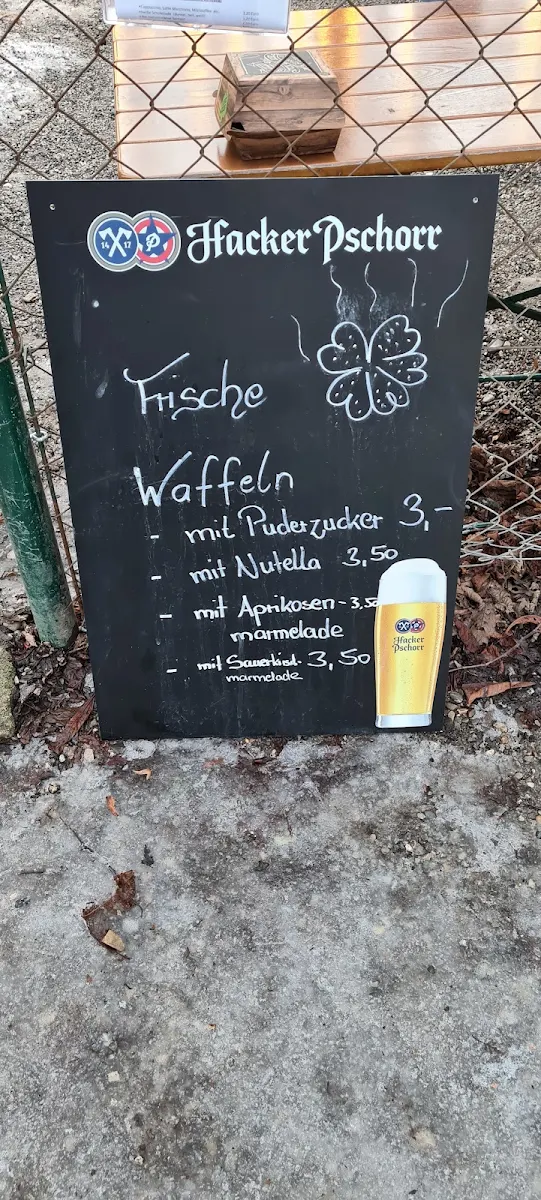 14 17 P Hacker Pschorr
Frische
Waffeln
- mit Puderzucker 3,-
- mit Nutella 3,50
- mit Aprikosen- 3,50
marmelade
- mit Sauerkirsch- 3,50
marmelade
Hacker
Pschorr